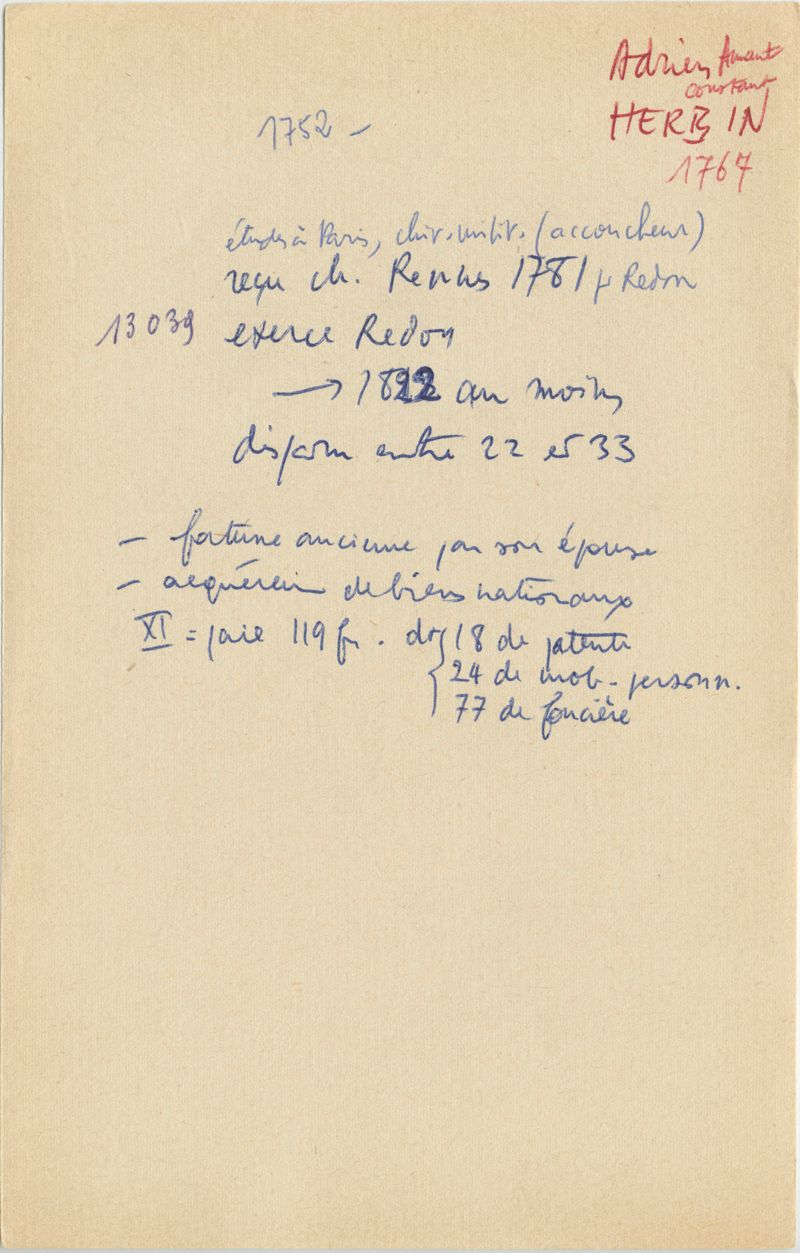 Adrien Amant
constant
HERBIN
1767
1752 –
études à Paris, chir. milit. (accoucheur)
reçu ch. Rennes 1781 pr Redon
13 039 exerce Redon
→ 1822 au moins
disparu entre 22 et 33
– fortune ancienne par son épouse
– acquéreur de biens nationaux
XI = paie 119 fr. dt 18 de patente
24 de mob - personn.
77 de foncière